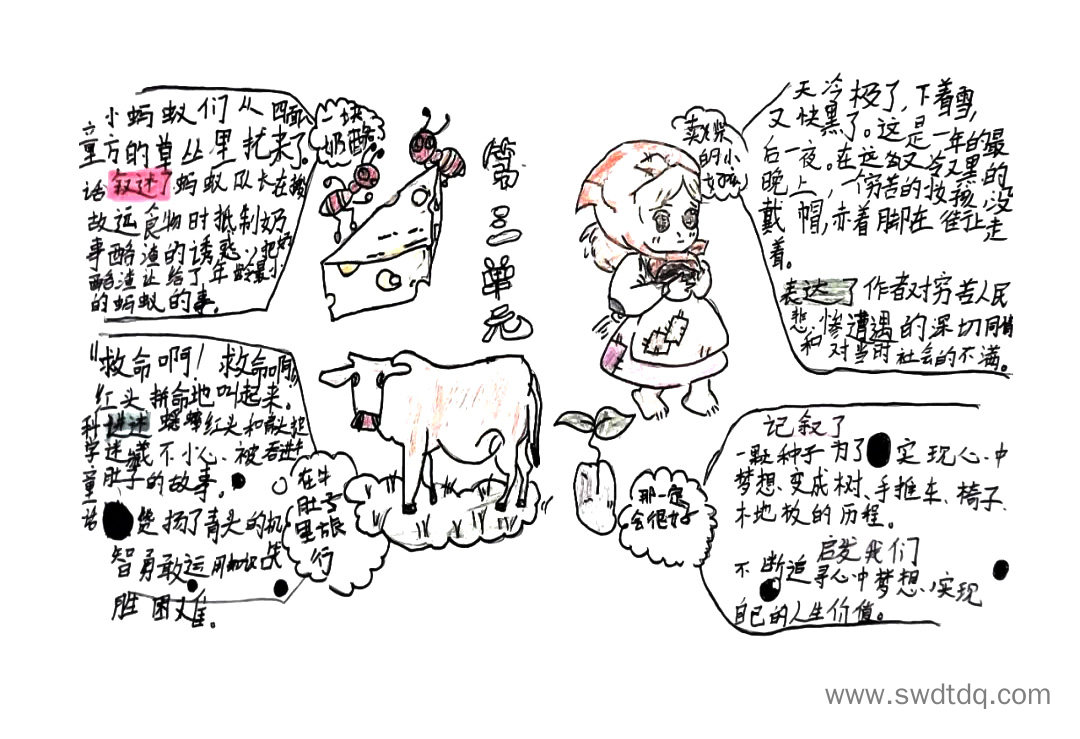 第三单元
一块
奶酪
小蚂蚁们从四面
八方的草丛里托来了。
童话故事
叙述了蚂蚁队长在搬
运食物时抵制奶
酪渣的诱惑,把奶
酪渣让给了年龄最小
的蚂蚁的事。
卖火柴
的小
女孩
天冷极了,下着雪,
又快黑了。这是一年的最
后一夜。在这个又冷又黑的
晚上,一个穷苦的女孩,没
戴帽,赤着脚在街上走
着。
表达了作者对穷苦人民
悲惨遭遇的深切同情
和对当时社会的不满。
在牛
肚子
里旅
行
“救命啊!救命啊
红头拼命地叫起来。
科学童话
讲述蟋蟀红头和青头捉
迷藏不小心被吞进牛
肚子的故事。
赞扬了青头的机
智勇敢运用知识战
胜困难。
那一定
会很好
记叙了
一颗种子为了实现心中
梦想、变成树、手推车、椅子、
木地板的历程。
启发我们
不断追寻心中梦想,实现
自己的人生价值。
www.swdtdq.com